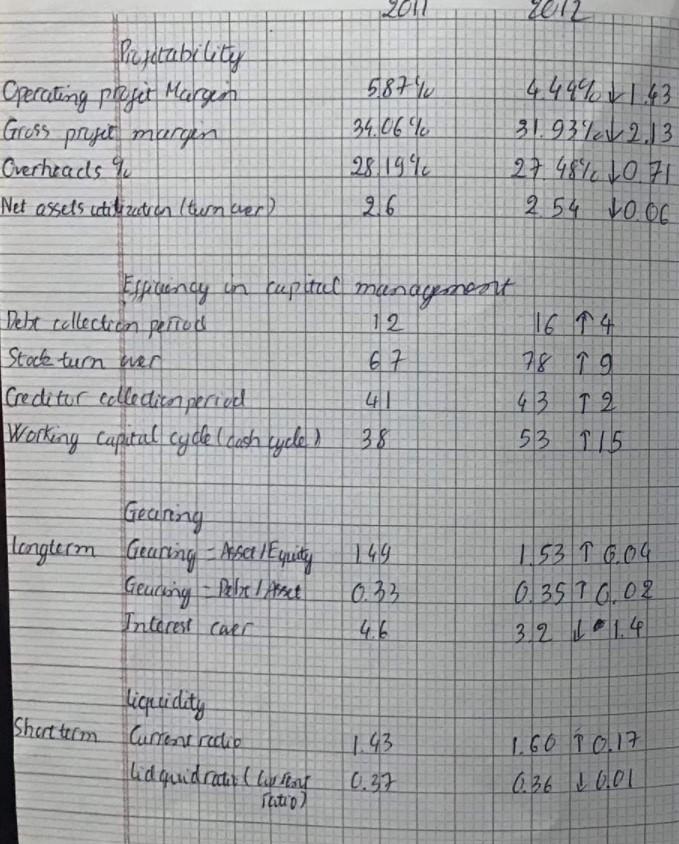 2011 2012
Profitability
Operating profit Margin 5.87% 4.44% ↓1.43
Gross profit margin 34.06% 31.93% ↓2.13
Overheads % 28.19% 27.48% ↓0.71
Net assets utilization (turn over) 2.6 2.54 ↓0.06
Efficiency in capital management
Debt collection period 12 16 ↑4
Stock turn over 67 78 ↑9
Creditor collection period 41 43 ↑2
Working capital cycle (cash cycle) 38 53 ↑15
Gearing
longterm Gearing - Asset/Equity 1.49 1.53 ↑0.04
Gearing - Debt/Asset 0.33 0.35 ↑0.02
Interest cover 4.6 3.2 ↓1.4
liquidity
Short term Current ratio 1.43 1.60 ↑0.17
Lidquid ratio (current 0.37 0.36 ↓0.01
ratio)